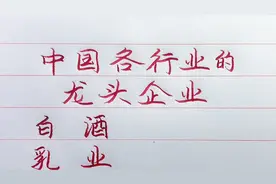 中国各行业的
龙头企业
白酒
乳业